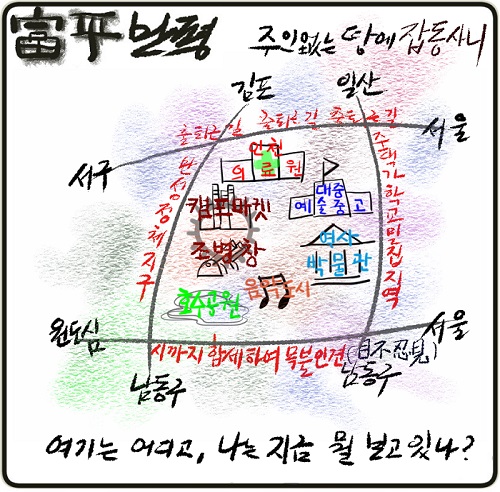 富平 만평
주인없는 땅에 잡동사니
김포
일산
출퇴근길 출퇴근길 출퇴근길
서구
서울
만성정체지구
주택가학교밀집지역
인천
의료원
대중
예술중고
캠프마켓
조병창
역사
박물관
음악도시
호수공원
원도심
서울
시까지 합세하여 목불인견(目不忍見)
남동구
남동구
여기는 어디고, 나는 지금 뭘 보고있나?